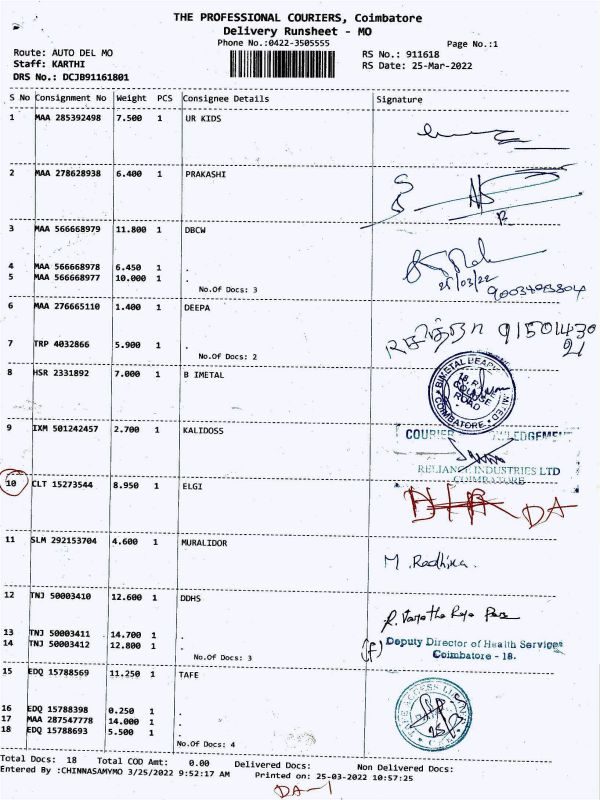 THE PROFESSIONAL COURIERS, Coimbatore
Delivery Runsheet - MO
Phone No.:0422-3505555
Page No.:1
Route: AUTO DEL MO
RS No.: 911618
Staff: KARTHI
RS Date: 25-Mar-2022
DRS No.: DCJB91161801
S No Consignment No Weight PCS Consignee Details Signature
1 MAA 285392498 7.500 1 UR KIDS
2 MAA 278628938 6.400 1 PRAKASHI
3 MAA 566668979 11.800 1 DBCW
4 MAA 566668978 6.450 1 .
5 MAA 566668977 10.000 1 .
25/03/22
No.Of Docs: 3
6 MAA 276665110 1.400 1 DEEPA
7 TRP 4032866 5.900 1 .
No.Of Docs: 2
91501430
21
8 HSR 2331892 7.000 1 B IMETAL
COLLEGE
ROAD
COIMBATORE
9 IXM 501242457 2.700 1 KALIDOSS
COURIER
RELIANCE INDUSTRIES LTD
COIMBATORE
10 CLT 15273544 8.950 1 ELGI
DA
11 SLM 292153704 4.600 1 MURALIDOR
M. Radhika
12 TNJ 50003410 12.600 1 DDHS
13 TNJ 50003411 14.700 1 .
14 TNJ 50003412 12.800 1 .
No.Of Docs: 3
(f) Deputy Director of Health Services
Coimbatore - 18.
15 EDQ 15788569 11.250 1 TAFE
16 EDQ 15788398 0.250 1 .
17 MAA 287547778 14.000 1 .
18 EDQ 15788693 5.500 1 .
No.Of Docs: 4
Total Docs: 18 Total COD Amt: 0.00 Delivered Docs: Non Delivered Docs:
Entered By :CHINNASAMYMO 3/25/2022 9:52:17 AM Printed on: 25-03-2022 10:57:25
DA-1